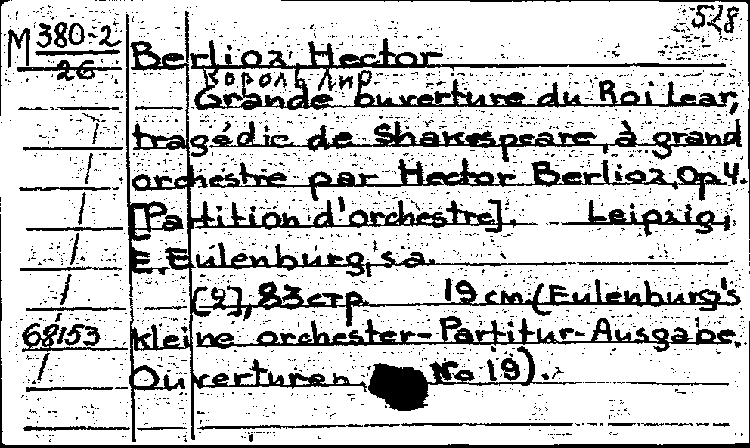 528
M 380-2
26
Berlioz, Hector
Король Лир
Grande ouverture du Roi Lear,
tragédie de Shakespeare, à grand
orchestre par Hector Berlioz. Op 4.
[Partition d'orchestre]. Leipzig,
E. Eulenburg, s.a.
[2], 83 стр. 19 cm. (Eulenburg's
68153 kleine orchester-Partitur-Ausgabe.
Ouverturen No 19).